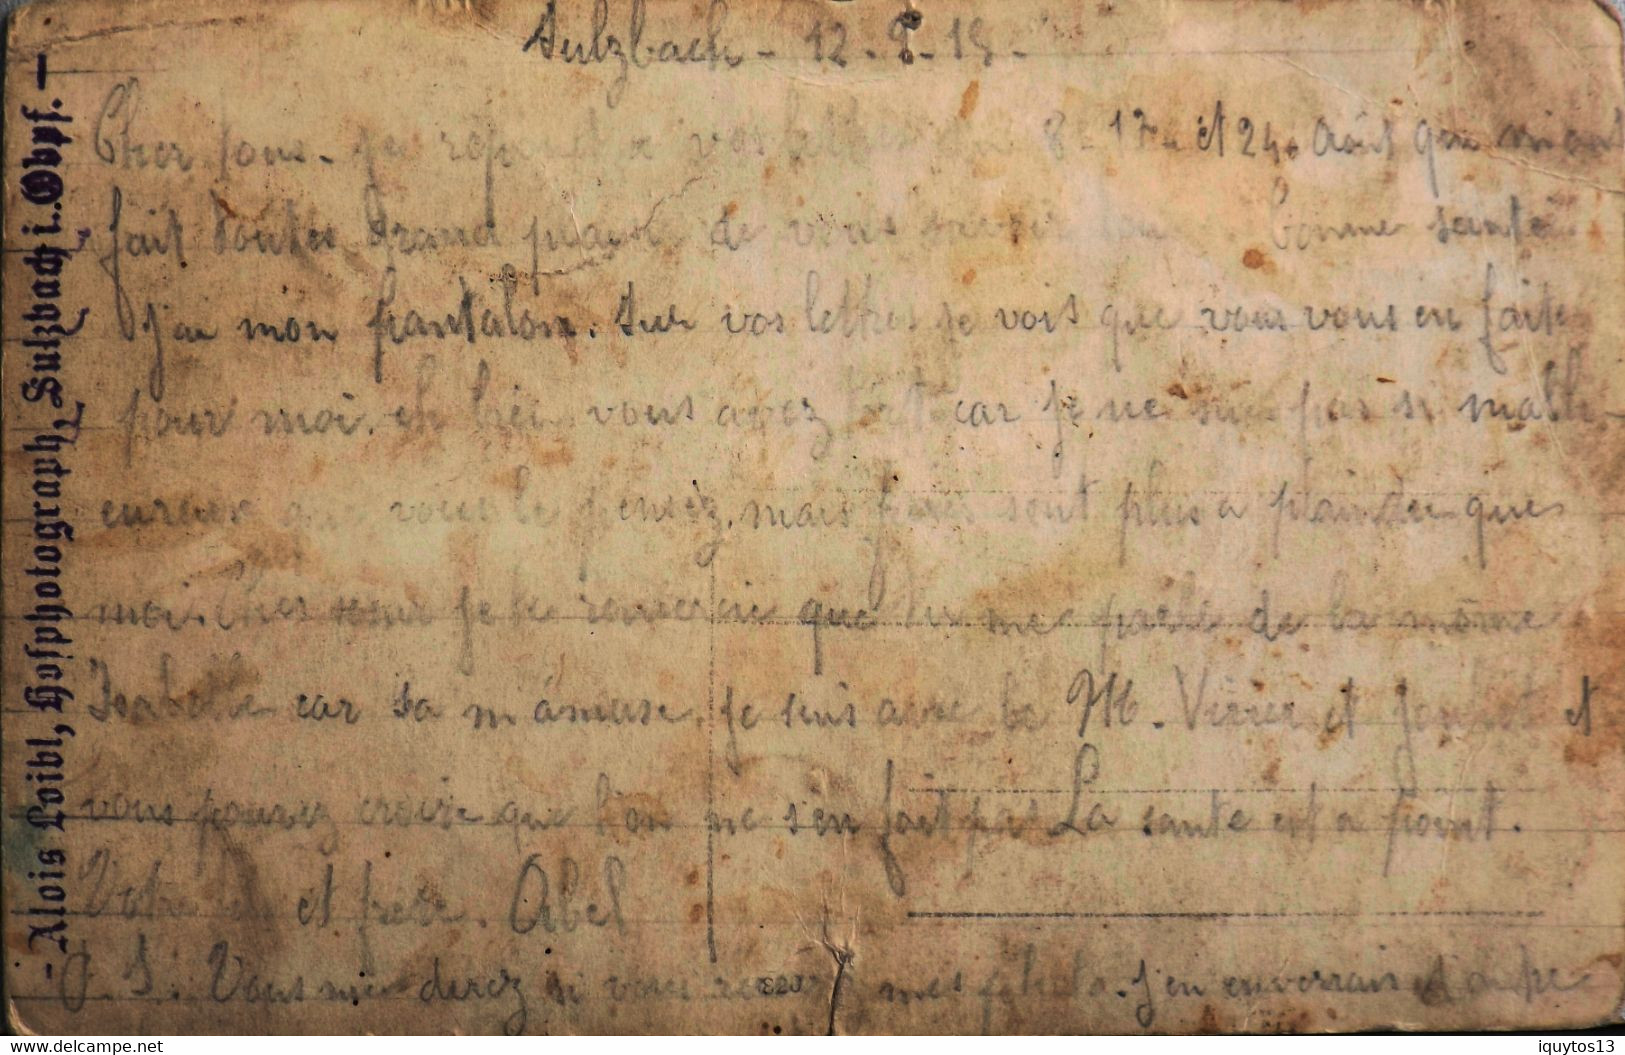 Sulzbach - 12 - 9 - 15 -
Cher tous. je répond a vos lettres du 8 - 17 - et 24. Août que m'ont
fait toutes grand plaisir de vous savoir bonne santé
J'ai mon pantalon. Sur vos lettres je vois que vous vous en faite
pour moi. eh bien vous avez tort car je ne suis pas si malh-
eureux que vous le pensez, mais sont plus a plaindre que
moi. Cher soeur je te remercie que tu me parle de la môme
Isabelle car sa m'amuse. je suis avec le M. Verrier et et
vous pouvez croire que l'on ne s'en fait pas La santé est a point.
Votre fils et frère. Abel
P. S. Vous me direz si vous mes photo. J'en enverrais
- Alois Loibl, Hofphotograph, Sulzbach i. Obpf. -
820
iquytos13
www.delcampe.net